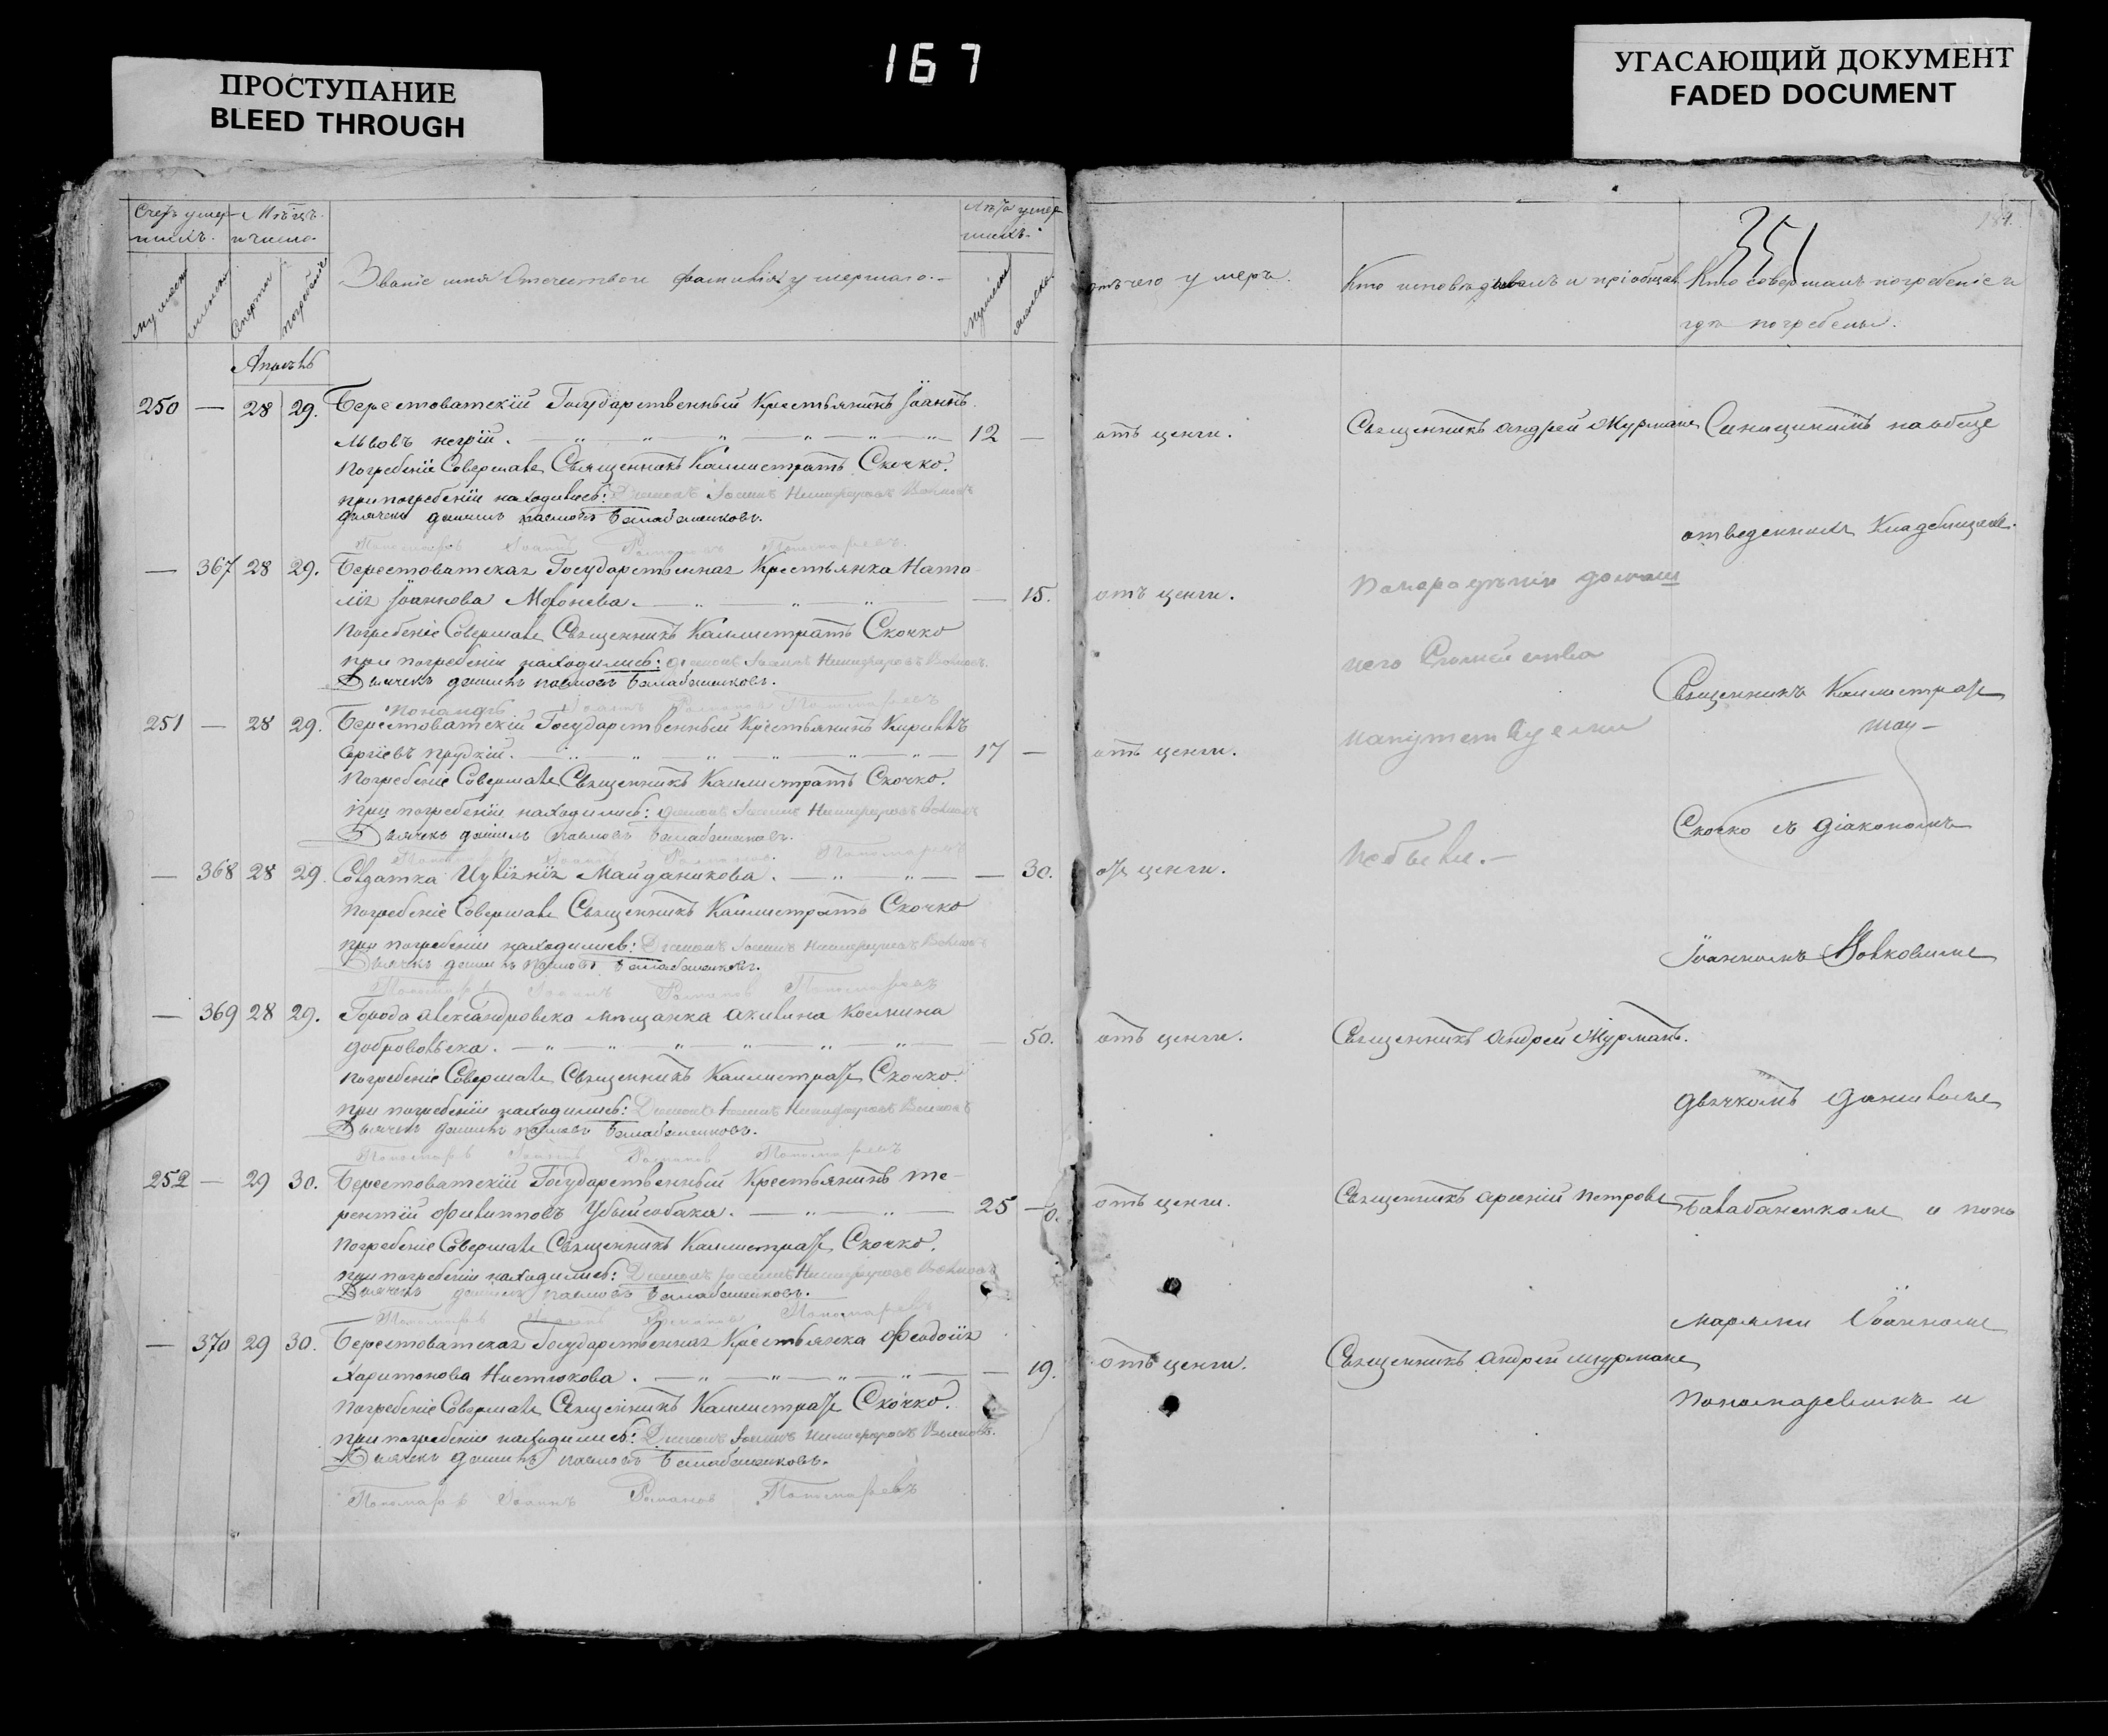 167
ПРОСТУПАНИЕ
BLEED THROUGH
УГАСАЮЩИЙ ДОКУМЕНТ
FADED DOCUMENT
351
Счетъ умер-
шихъ.
Мѣсяцъ
и число.
Звание имя Отечество и фамилія умершаго.
Лѣта умер
шихъ.
отъ чего умеръ.
Кто исповѣдывалъ и пріобщалъ
Кто совершалъ погребеніе и
гдѣ погребены.
Апрѣль
250 — 28 29. Берестоватскій Государственный Крестьянинъ Іоаннъ
Львовъ Негрій. 12 — отъ цинги. Священникъ Андрей Журманъ
Погребеніе Совершалъ Священникъ Каллистратъ Скочко.
при погребеніи находились: Діаконъ Іоаннъ Никифоровъ Волковъ
дьячекъ Даніилъ Павловъ Балабаненковъ.
Пономарь Іоаннъ Романовъ Пономаревъ.
— 367 28 29. Берестоватская Государственная Крестьянка Ната-
лія Іоаннова 15. отъ цинги.
Погребеніе Совершалъ Священникъ Каллистратъ Скочко
при погребеніи находились: діаконъ Іоаннъ Никифоровъ Волковъ.
Дьячекъ Даніилъ Павловъ Балабаненковъ.
Пономарь Іоаннъ Романовъ Пономаревъ
251 — 28 29. Берестоватскій Государственный Крестьянинъ Кириллъ
Сергіевъ Прудкій. 17 — отъ цинги.
Погребеніе Совершалъ Священникъ Каллистратъ Скочко.
при погребеніи находились: діаконъ Іоаннъ Никифоровъ Волковъ
Дьячекъ Даніилъ Павловъ Балабаненковъ.
Пономарь Іоаннъ Романовъ Пономаревъ
— 368 28 29. Солдатка Майданикова. — 30. отъ цинги.
Погребеніе Совершалъ Священникъ Каллистратъ Скочко
при погребеніи находились: Діаконъ Іоаннъ Никифоровъ Волковъ
Дьячекъ Даніилъ Павловъ Балабаненковъ.
Пономарь Іоаннъ Романовъ Пономаревъ
— 369 28 29. Города Александровска мѣщанка Акилина Космина
Добровольска. — 50. отъ цинги. Священникъ Андрей Журманъ.
Погребеніе Совершалъ Священникъ Каллистратъ Скочко.
при погребеніи находились: Діаконъ Іоаннъ Никифоровъ Волковъ
Дьячекъ Даніилъ Павловъ Балабаненковъ.
Пономарь Іоаннъ Романовъ Пономаревъ
252 — 29 30. Берестоватскій Государственный Крестьянинъ Те-
рентій Филипповъ Убыйсобака. 25 — отъ цинги. Священникъ Арсеній Петровъ
Погребеніе Совершалъ Священникъ Каллистратъ Скочко.
при погребеніи находились: Діаконъ Іоаннъ Никифоровъ Волковъ
Дьячекъ Даніилъ Павловъ Балабаненковъ.
Пономарь Іоаннъ Романовъ Пономаревъ
— 370 29 30. Берестоватская Государственная Крестьянка Феодосія
Харитонова Настюкова. — 19. отъ цинги. Священникъ Андрей Журманъ
Погребеніе Совершалъ Священникъ Каллистратъ Скочко.
при погребеніи находились: Діаконъ Іоаннъ Никифоровъ Волковъ.
Дьячекъ Даніилъ Павловъ Балабаненковъ.
Пономарь Іоаннъ Романовъ Пономаревъ
напутствуемы
небыли.
на обще
отведенномъ Кладбищѣ.
Священникъ Каллистратъ
Скочко съ діакономъ
Іоанномъ Волковымъ
дьячкомъ Даніиломъ
Балабаненкомъ и поно
маремъ Іоанномъ
Пономаревымъ и